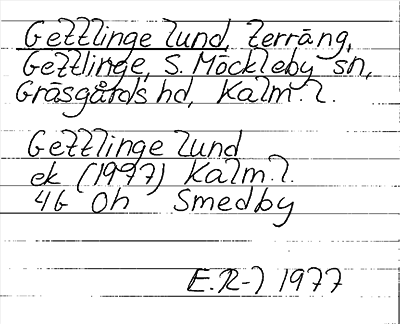 Gettlinge lund, terräng,
Gettlinge, S. Möckleby sn,
Gräsgårds hd, Kalm. l.
Gettlinge lund
ek (1977) Kalm. l.
4G 0h Smedby
E.R-7 1977